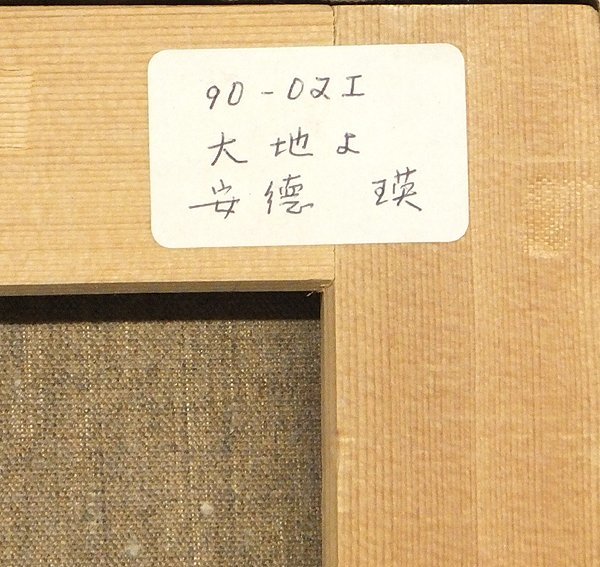 90-02I
大地よ
安德 瑛